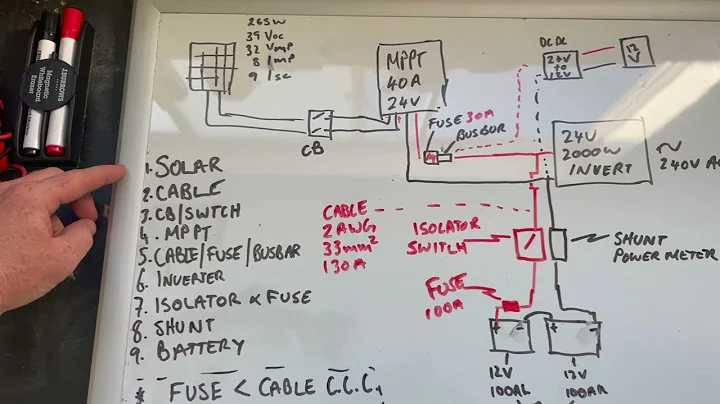 265W
39 Voc
32 Vmp
8 Imp
9 Isc
MPPT
40A
24V
DC DC
24V
to
12V
12
V
CB
FUSE 30A
BUSBUR
24V
2000W
INVERT
~
240V AC
Magnetic
Whiteboard
Eraser
1. SOLAR
2. CABLE
3. CB/SWTCH
4. MPPT
5. CABLE/FUSE/BUSBAR
6. INVERTER
7. ISOLATOR & FUSE
8. SHUNT
9. BATTERY
CABLE
2AWG
33mm²
130A
ISOLATOR
SWITCH
SHUNT
POWER METER
FUSE
100A
+ -
+ -
12V
100AH
12V
100AH
* FUSE < CABLE C.C.C.